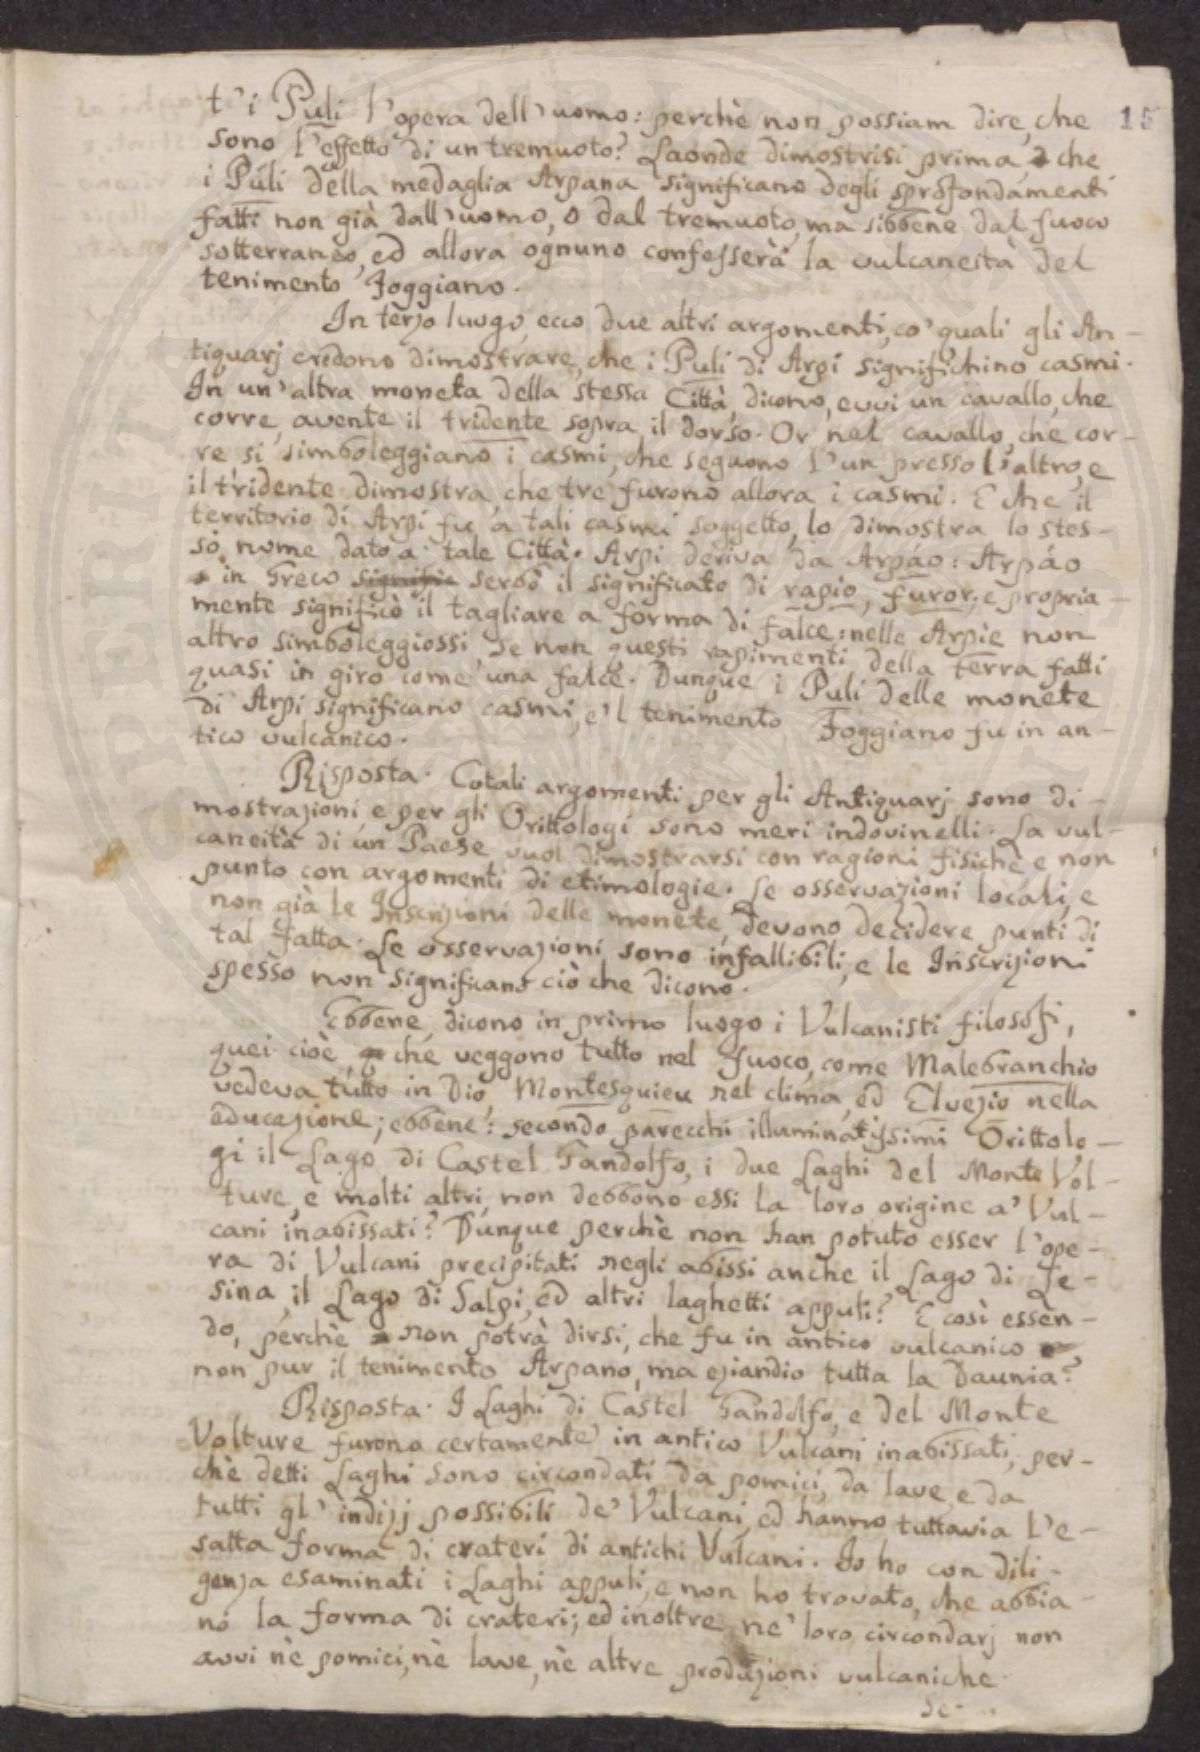 t' i Puli l'opera dell'uomo: perchè non possiam dire, che 15
sono l'effetto di un tremuoto? Laonde dimostrisi prima, che
i Puli della medaglia Arpana significano degli sprofondamenti
fatti non già dall'uomo, o dal tremuoto, ma sibbene dal fuoco
sotterraneo, ed allora ognuno confesserà la vulcaneità del
tenimento Foggiano.
In terzo luogo, ecco due altri argomenti, co' quali gli An-
tiquarj credono dimostrare, che i Puli di Arpi significhino casmi.
In un'altra moneta della stessa Città, dicono, evvi un cavallo, che
corre, avente il tridente sopra il dorso. Or nel cavallo, che cor-
re si simboleggiano i casmi, che seguono l'un presso l'altro, e
il tridente dimostra, che tre furono allora i casmi. E che il
territorio di Arpi fu a tali casmi soggetto, lo dimostra lo stes-
so nome dato a tale Città. Arpi deriva da Arpáo: Arpáo
in Greco signific serbò il significato di rapio, furor, e propria-
mente significò il tagliare a forma di falce: nelle Arpie non
altro simboleggiossi se non questi rapimenti della terra fatti
quasi in giro come una falce. Dunque i Puli delle monete
di Arpi significano casmi, e 'l tenimento Foggiano fu in an-
tico vulcanico.
Risposta. Cotali argomenti per gli Antiquarj sono di-
mostrazioni, e per gli Orittologi sono meri indovinelli. La vul-
caneità di un Paese vuol dimostrarsi con ragioni fisiche, e non
punto con argomenti di etimologie. Le osservazioni locali, e
non già le Inscrizioni delle monete, devono decidere punti di
tal fatta. Le osservazioni sono infallibili, e le Inscrizioni
spesso non significano ciò che dicono.
Ebbene, dicono in primo luogo i Vulcanisti filosofi,
quei cioè, che veggono tutto nel fuoco, come Malebranchio
vedeva tutto in Dio, Montesquieu nel clima, ed Elvezio nella
educazione; ebbene: secondo parecchi illuminatissimi Orittolo-
gi il Lago di Castel Gandolfo, i due Laghi del Monte Vol-
ture, e molti altri, non debbono essi la loro origine a' Vul-
cani inabissati? Dunque perchè non han potuto esser l'ope-
ra di Vulcani precipitati negli abissi anche il Lago di Le-
sina, il Lago di Salpi, ed altri laghetti appuli? E così essen-
do, perchè non potrà dirsi, che fu in antico vulcanico
non pur il tenimento Arpano, ma eziandio tutta la Daunia?
Risposta. I Laghi di Castel Gandolfo, e del Monte
Volture furono certamente in antico Vulcani inabissati, per-
chè detti Laghi sono circondati da pomici, da lave, e da
tutti gl'indizj possibili de' Vulcani, ed hanno tuttavia l'e-
satta forma di crateri di antichi Vulcani. Io ho con dili-
genza esaminati i Laghi appuli, e non ho trovato, che abbia-
no la forma di crateri; ed inoltre ne' loro circondarj non
avvi nè pomici, nè lave, nè altre produzioni vulcaniche.
Se-